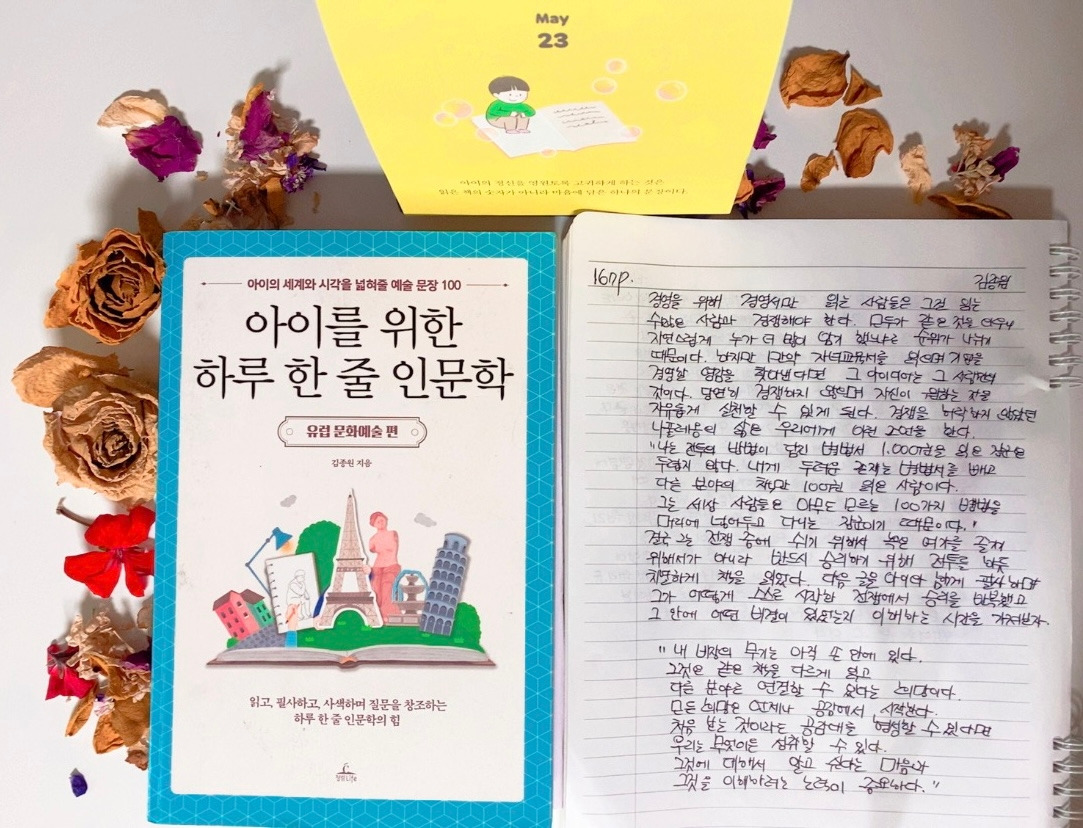 May
23
아이의 정신을 영원토록 고귀하게 하는 것은
읽은 책의 숫자가 아니라 마음에 담은 하나의 문장이다.
아이의 세계와 시각을 넓혀줄 예술 문장 100
아이를 위한
하루 한 줄 인문학
유럽 문화예술 편
김종원 지음
읽고, 필사하고, 사색하며 질문을 창조하는
하루 한 줄 인문학의 힘
167p. 김종원
경영을 위해 경영서만 읽는 사람들은 그걸 읽는
수많은 사람과 경쟁해야 한다. 모두가 같은 것을 배우니
자연스럽게 누가 더 많이 암기 했느냐로 순위가 나뉘기
때문이다. 하지만 만약 자녀교육서를 읽으며 기업을
경영할 영감을 찾아낸다면 그 아이디어는 그 사람만의
것이다. 당연히 경쟁하지 않으며 자신이 원하는 것을
자유롭게 실천할 수 있게 된다. 경쟁을 허락하지 않았던
나폴레옹의 삶은 우리에게 이런 조언을 한다.
"나는 전투의 방법이 담긴 병법서 1,000권을 읽은 장군은
두렵지 않다. 내게 두려운 존재는 병법서를 빼고
다른 분야의 책만 100권 읽은 사람이다.
그는 세상 사람들은 아무도 모르는 100가지 병법을
머리에 넣어두고 다니는 장군이기 때문이다."
결국 그는 전쟁 중에 쉬기 위해서 혹은 여가를 즐기기
위해서가 아니라 반드시 승리하기 위해 전투를 하듯
치열하게 책을 읽었다. 다음 글을 아이와 함께 필사하며
그가 어떻게 스스로 시작한 전쟁에서 승리를 반복했고
그 안에 어떤 비결이 있었는지 이해하는 시간을 가져보자.
" 내 비장의 무기는 아직 손 안에 있다.
그것은 같은 책을 다르게 읽고
다른 분야로 연결할 수 있다는 희망이다.
모든 희망은 언제나 공감에서 시작한다.
처음 보는 것이라도 공감대를 형성할 수 있다면
우리는 무엇이든 섭취할 수 있다.
그것에 대해서 알고 싶다는 마음과
그것을 이해하려는 노력이 중요하다. "